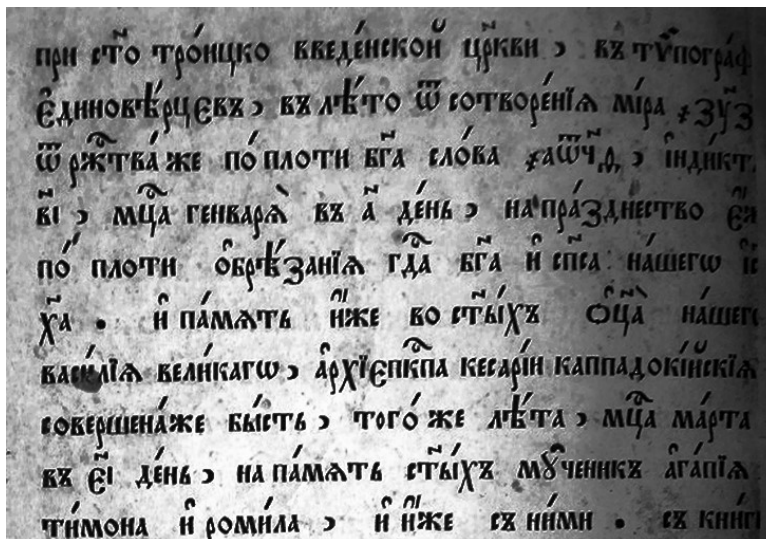 при ст҃о тро́ицко введе́нской цр҃кви , въ тѷпогра́ф
є҆диновѣ́рцєвъ , въ лѣ́то ѿ сотворе́нїѧ мі́ра ҂зу҃з
ѿ рж҇тва́ же по́ плоти бг҃а сло́ва ҂аѿч҃д , і҆нді́кт.
в҃і , мц҇а генварѧ̀ въ а҃ де́нь , на пра́зднество
по́ плоти ѻ҆брѣ́занїѧ гд҇а бг҃а и҆ сп҃са на́шегѡ і҆с
х҃а . и҆ па́мѧть и҆́же во ст҃ы́хъ ѻ҆ц҃а̀ на́шегѡ
васи́лїѧ вели́кагѡ , а҆рхїєпкⷭ҇па кесарі́и каппадокі́йскїѧ
соверше́на́же бы́сть , того́ же лѣ́та , мц҇а ма́рта
въ є҃і де́нь , на па́мѧть ст҃ы́хъ мꙋ́ченикъ а҆га́пїѧ
ти́мона и҆ роми́ла , и҆ и҆́же съ ни́ми . съ кни́г